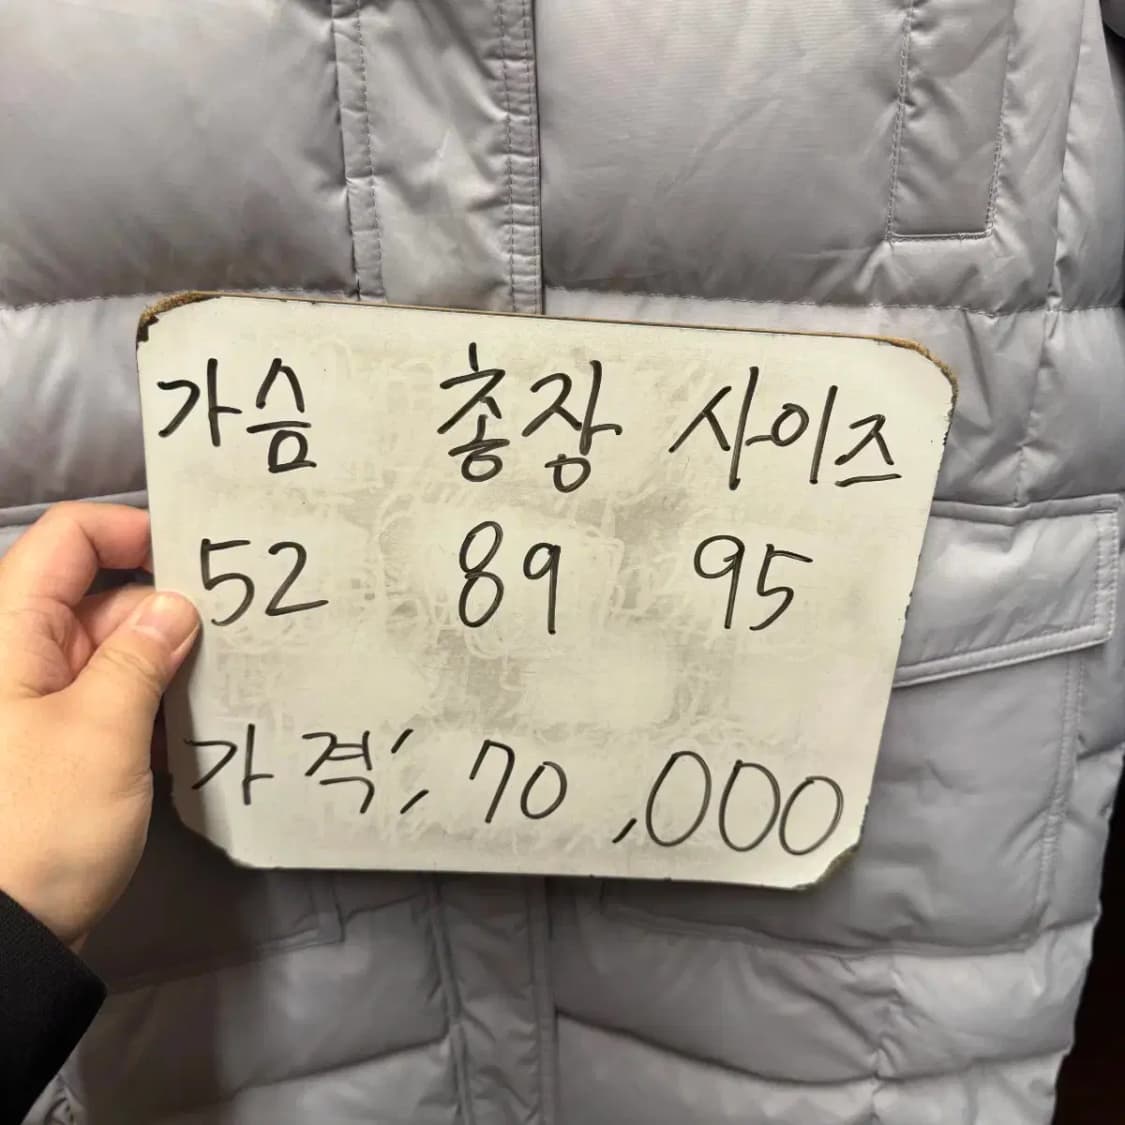 가슴 총장 사이즈
52 89 95
가격; 70,000